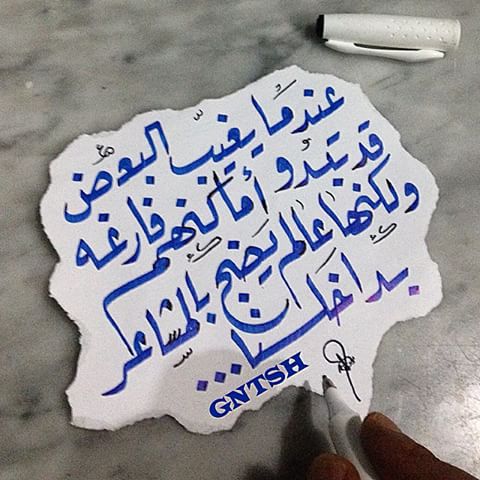 عندما يغيب البعض
قد تبدو أماكنهم فارغه
ولكنها عالم يضج بالمشاعر
بداخلنا...
GNTSH